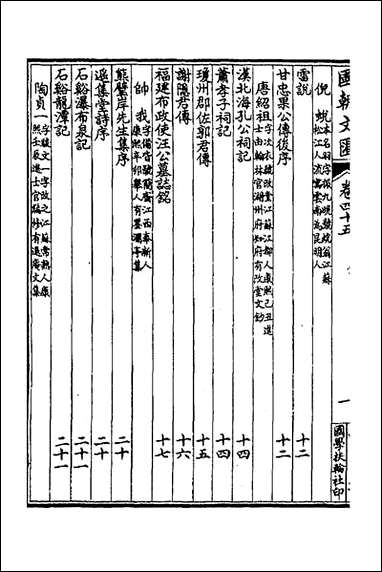 國朝文匯 卷四十五 一 國學扶輪社印
倪 蛻 本名羽字振九晚號蛻翁江蘇松江人流寓雲南為昆明人
雷說 十二
甘忠果公傳後序 十二
唐紹祖 字次衣號改堂江蘇江都人康熙己丑進士由翰林官湖州府知府有改堂文鈔
漢北海孔公祠記 十四
蕭孝子祠記 十四
瓊州郡佐郭君傳 十五
謝隱君傳 十六
福建布政使汪公墓誌銘 十七
帥 我 字備皆號簡齋江西奉新人康熙年舉人有墨瀾亭集
熊蘗岸先生集序 二十
遥集堂詩序 二十
石谿瀑布泉記 二十一
石谿龍潭記 二十一
陶貞一 字駿文一字改之江蘇常熟人康熙壬辰進士官編修有退庵文集